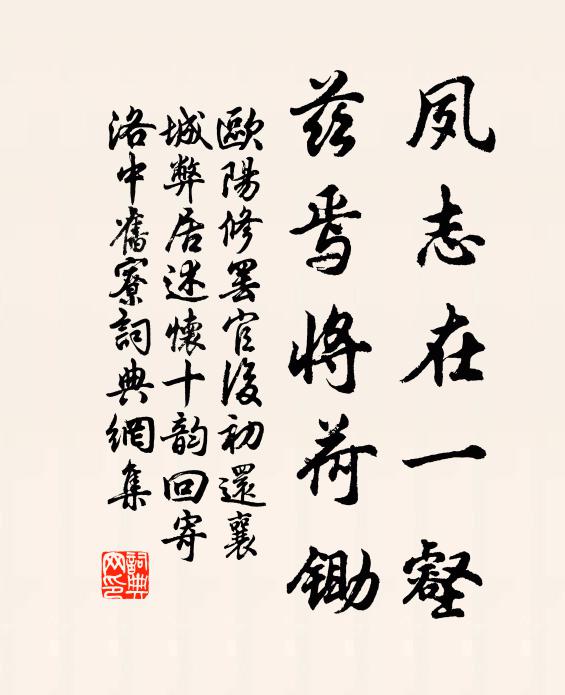 夙志在一壑
茲焉將荷鋤
歐陽修罷官後初還襄
城弊居述懷十韵回寄
洛中舊寮詞典網集
詞典網印